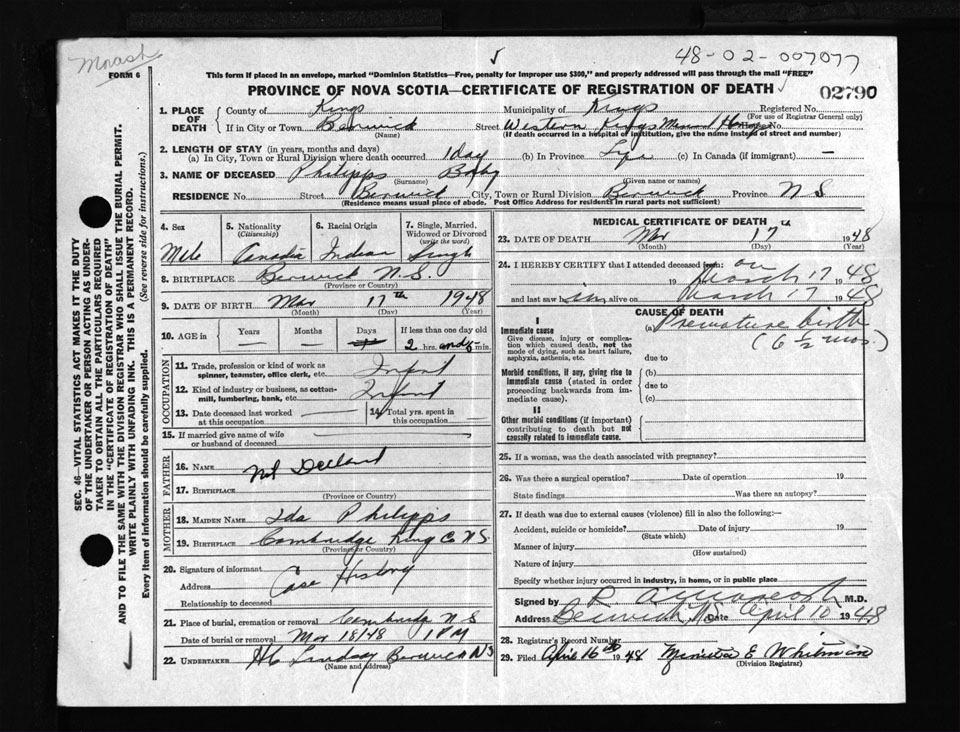 Morash
48-02-007077
FORM 6
This form if placed in an envelope, marked "Dominion Statistics—Free, penalty for improper use $300," and properly addressed will pass through the mail "FREE"
PROVINCE OF NOVA SCOTIA—CERTIFICATE OF REGISTRATION OF DEATH
02790
1. PLACE OF DEATH
County of Kings Municipality of Kings Registered No.
(For use of Registrar General only)
If in City or Town Berwick Street Western Kings Hosp
(If death occurred in a hospital or institution, give the name instead of street and number)
2. LENGTH OF STAY (in years, months and days)
(a) In City, Town or Rural Division where death occurred 1 Day (b) In Province (c) In Canada (if immigrant) —
3. NAME OF DECEASED Philipps Baby
(Surname) (Given name or names)
RESIDENCE No. Street Berwick City, Town or Rural Division Berwick Province N S
(Residence means usual place of abode. Post Office Address for residents in rural parts not sufficient)
4. Sex 5. Nationality (Citizenship) 6. Racial Origin 7. Single, Married, Widowed or Divorced (write the word)
Male Canadia Indian Single
8. BIRTHPLACE Berwick N.S.
(Province or Country)
9. DATE OF BIRTH Mar 17th 1948
(Month) (Day) (Year)
10. AGE in Years Months Days If less than one day old
2 hrs. and 5 min.
OCCUPATION
11. Trade, profession or kind of work as spinner, teamster, office clerk, etc. Infant
12. Kind of industry or business, as cotton-mill, lumbering, bank, etc. Infant
13. Date deceased last worked at this occupation 14. Total yrs. spent in this occupation
15. If married give name of wife or husband of deceased
FATHER
16. NAME Not Declared
17. BIRTHPLACE
(Province or Country)
MOTHER
18. MAIDEN NAME Ida Philipps
19. BIRTHPLACE Cambridge King Co N S
(Province or Country)
20. Signature of informant
Address Case History
Relationship to deceased
21. Place of burial, cremation or removal Cambridge N S
Date of burial or removal Mar 18/48 1 PM
22. UNDERTAKER Lindsay Berwick N S
(Name and address)
MEDICAL CERTIFICATE OF DEATH
23. DATE OF DEATH Mar 17 1948
(Month) (Day) (Year)
24. I HEREBY CERTIFY that I attended deceased from: on
19 March 17 48
and last saw him alive on March 17 1948
CAUSE OF DEATH
I
Immediate cause
Give disease, injury or complication which caused death, not the mode of dying, such as heart failure, asphyxia, asthenia, etc.
(a) Premature birth
(6 ½ mos.)
due to
Morbid conditions, if any, giving rise to immediate cause (stated in order proceeding backwards from immediate cause).
(b)
due to
(c)
II
Other morbid conditions (if important) contributing to death but not causally related to immediate cause.
25. If a woman, was the death associated with pregnancy?
26. Was there a surgical operation? Date of operation 19
State findings Was there an autopsy?
27. If death was due to external causes (violence) fill in also the following:—
Accident, suicide or homicide? Date of injury 19
(State which)
Manner of injury
(How sustained)
Nature of injury
Specify whether injury occurred in industry, in home, or in public place
Signed by R. M.D.
Address Berwick, N.S. Date April 10 1948
28. Registrar's Record Number
29. Filed April 16th 1948 E Whitman
(Division Registrar)
SEC. 46—VITAL STATISTICS ACT MAKES IT THE DUTY
OF THE UNDERTAKER OR PERSON ACTING AS UNDER-
TAKER TO OBTAIN ALL THE PARTICULARS REQUIRED
IN THE "CERTIFICATE OF REGISTRATION OF DEATH"
AND TO FILE THE SAME WITH THE DIVISION REGISTRAR WHO SHALL ISSUE THE BURIAL PERMIT.
WRITE PLAINLY WITH UNFADING INK. THIS IS A PERMANENT RECORD.
Every item of information should be carefully supplied. (See reverse side for instructions.)